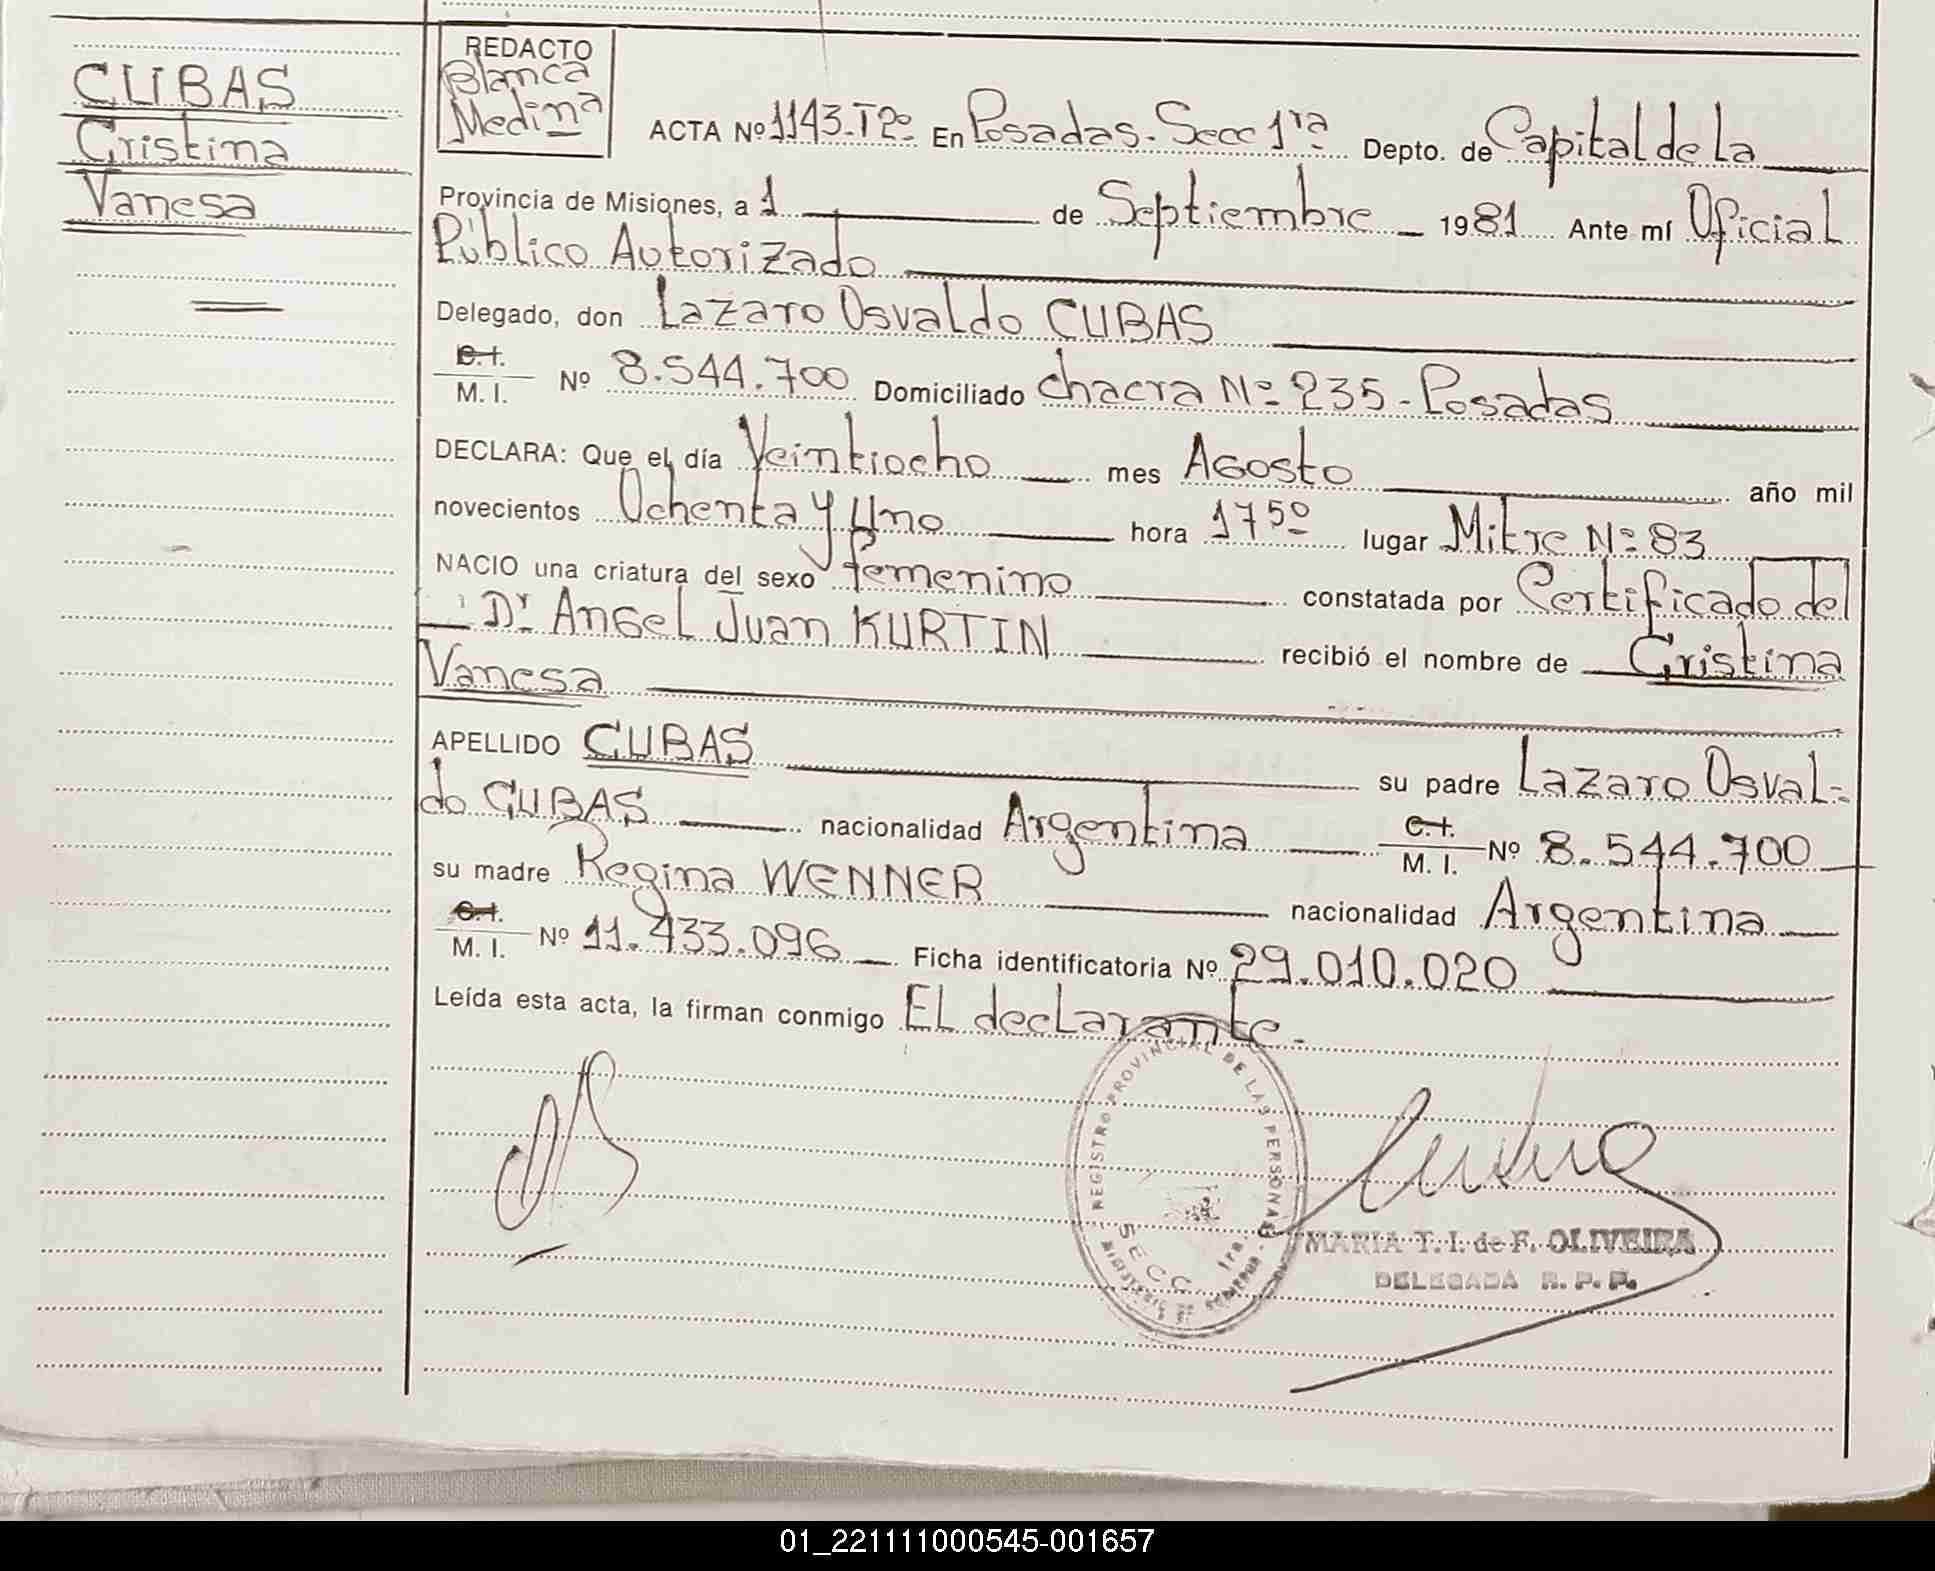 CUBAS
Cristina
Vanesa
REDACTO
Blanca
Medina
ACTA Nº 1143-Tº2º En Posadas-Secc 1ra Depto. de Capital de la
Provincia de Misiones, a 1 de Septiembre 1981 Ante mí Oficial
Público Autorizado
Delegado, don Lazaro Osvaldo CUBAS
C.I.
M. I. Nº 8.544.700 Domiciliado chacra Nº 235-Posadas
DECLARA: Que el día Veintiocho mes Agosto año mil
novecientos Ochenta y Uno hora 17 50 lugar Mitre Nº 83
NACIO una criatura del sexo femenino constatada por Certificado del
Dr Angel Juan KURTIN recibió el nombre de Cristina
Vanesa
APELLIDO CUBAS su padre Lazaro Osval-
do CUBAS nacionalidad Argentina C.I.
M. I. Nº 8.544.700
su madre Regina WENNER nacionalidad Argentina
C.I.
M. I. Nº 11.433.096 Ficha identificatoria Nº 29.010.020
Leída esta acta, la firman conmigo El declarante.
REGISTRO PROVINCIAL DE LAS PERSONAS
SECC 1ra.
MARIA T. I. de F. OLIVEIRA
DELEGADA R. P. P.
01_221111000545-001657